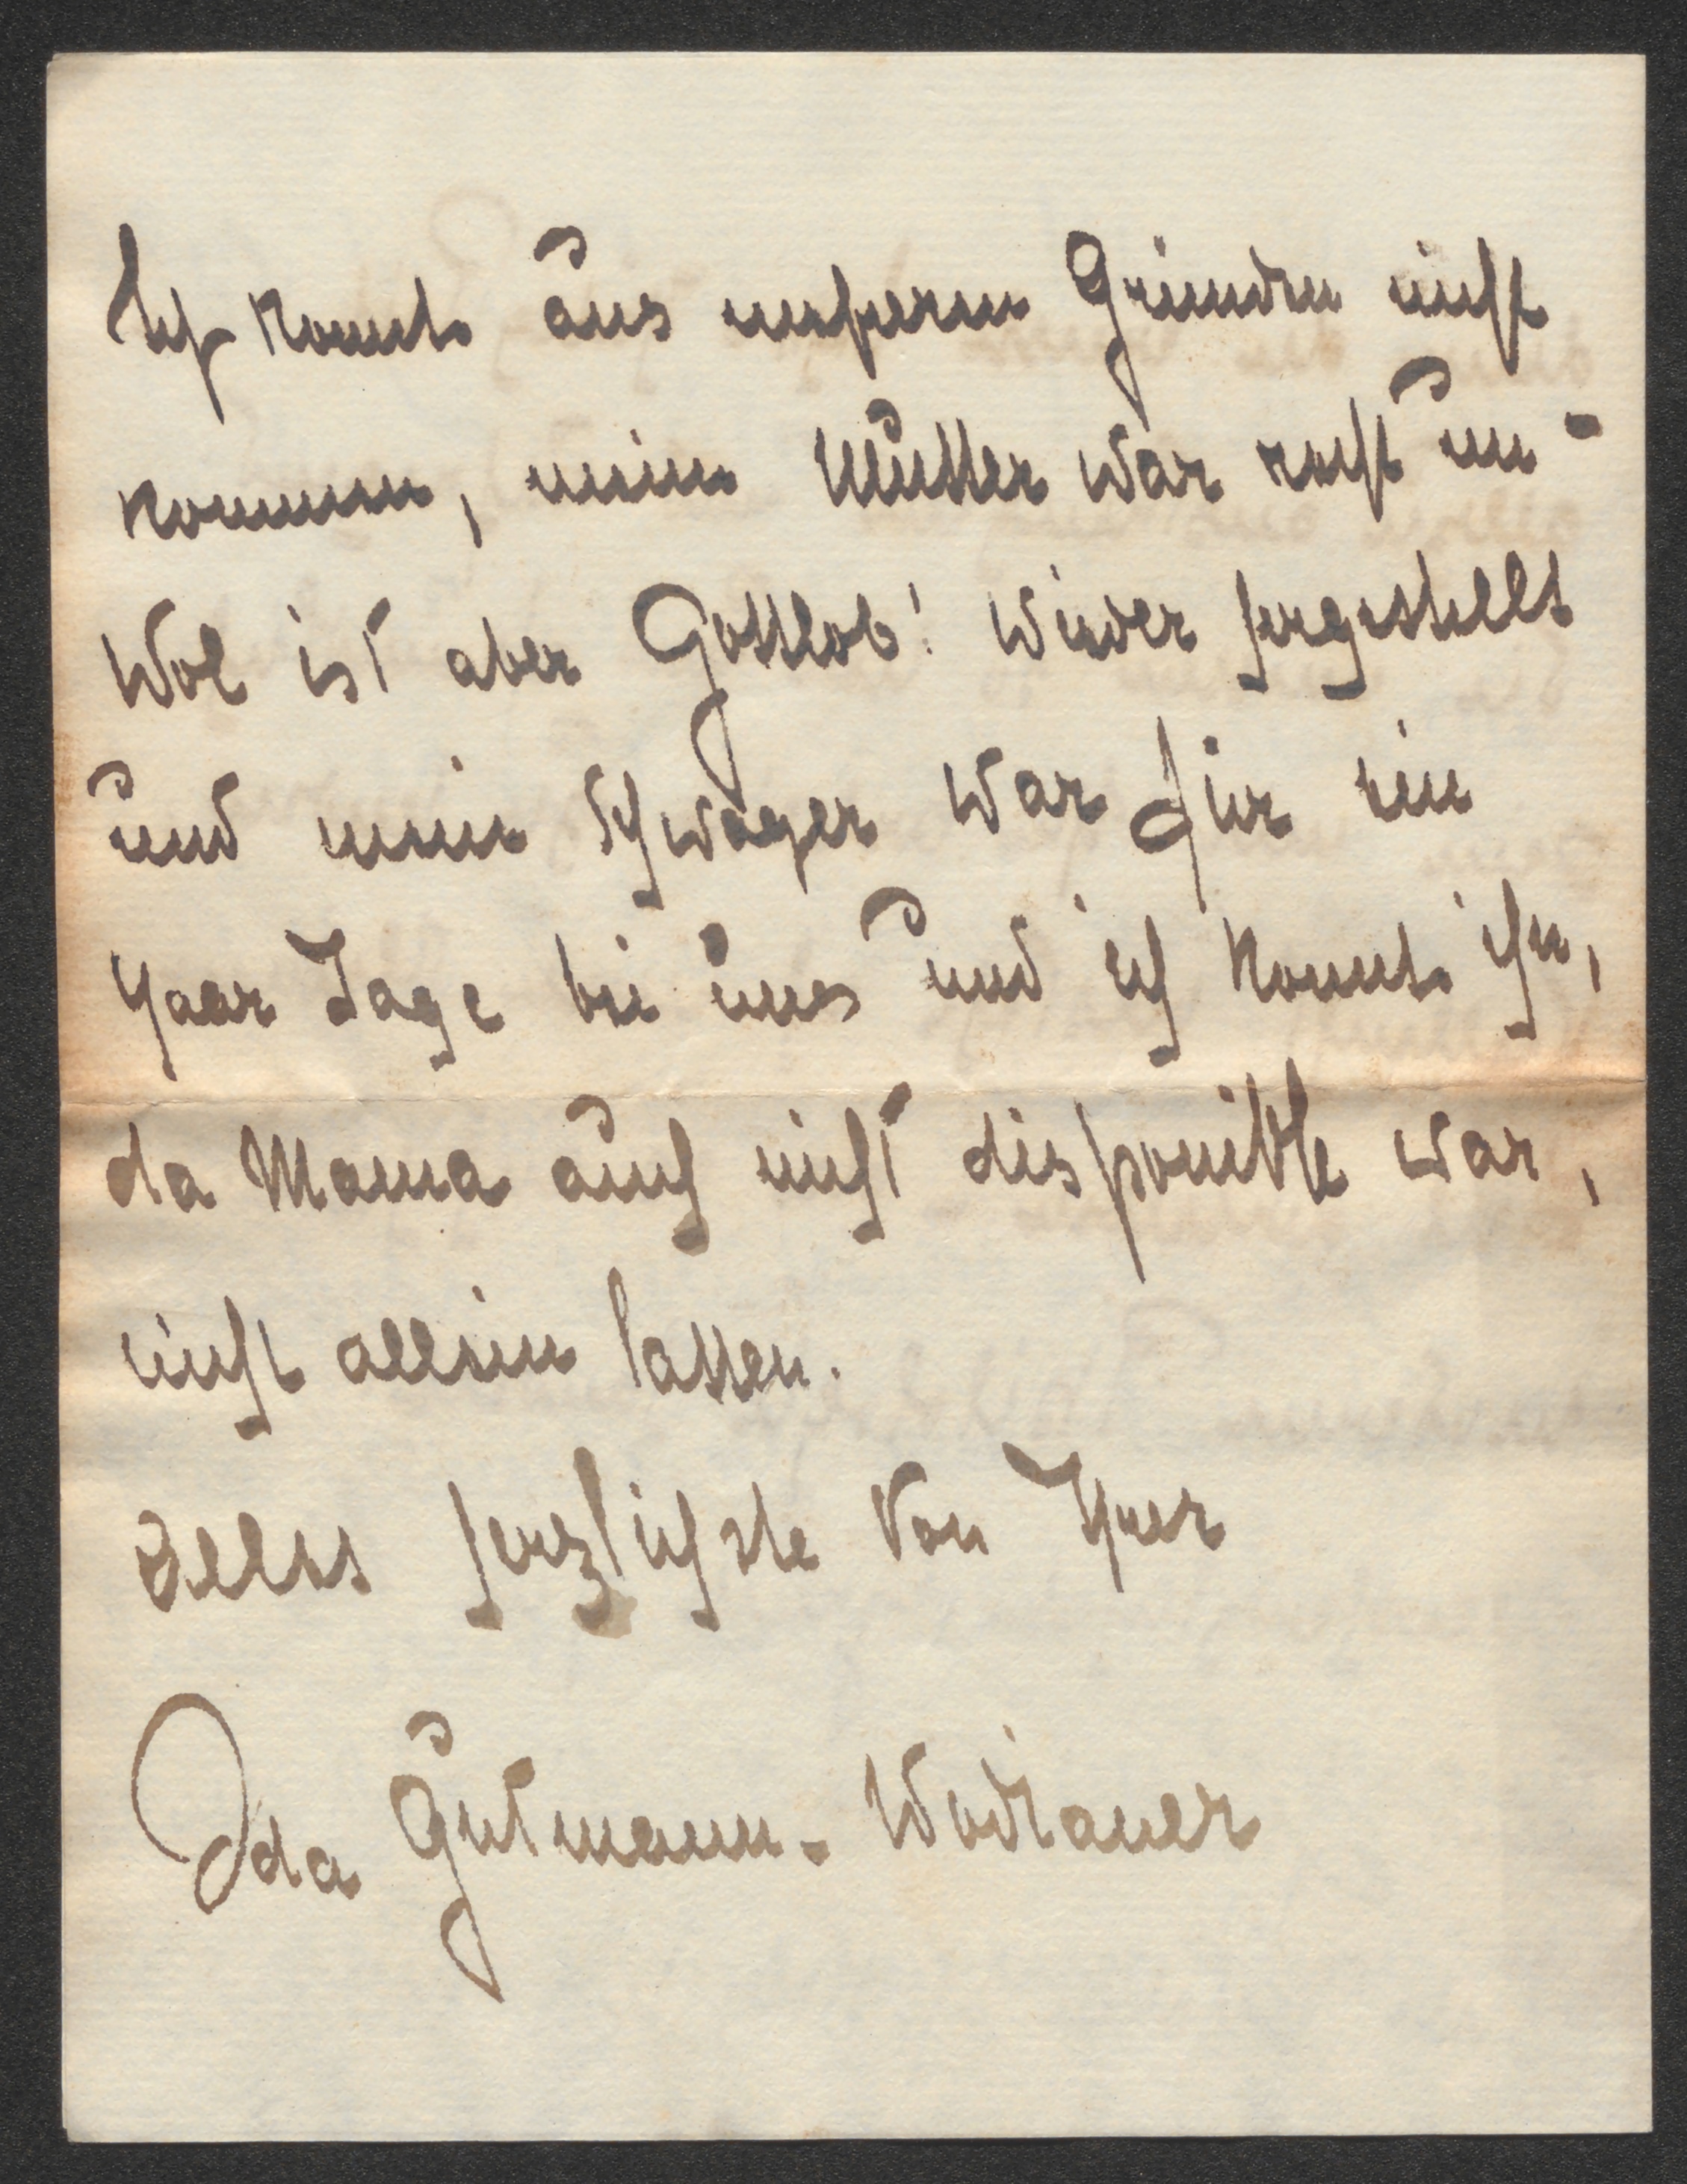 Ich konnte aus mehreren Gründen nicht
kommen, meine Mutter war recht un-
wol ist aber Gottlob! wieder hergestellt
und mein Schwager war für ein
paar Tage bei uns und ich konnte ihn,
da Mama auch nicht disponible war,
nicht allein lassen.
Alles herzlichste von Ihrer
Ida Gutmann-Wodianer